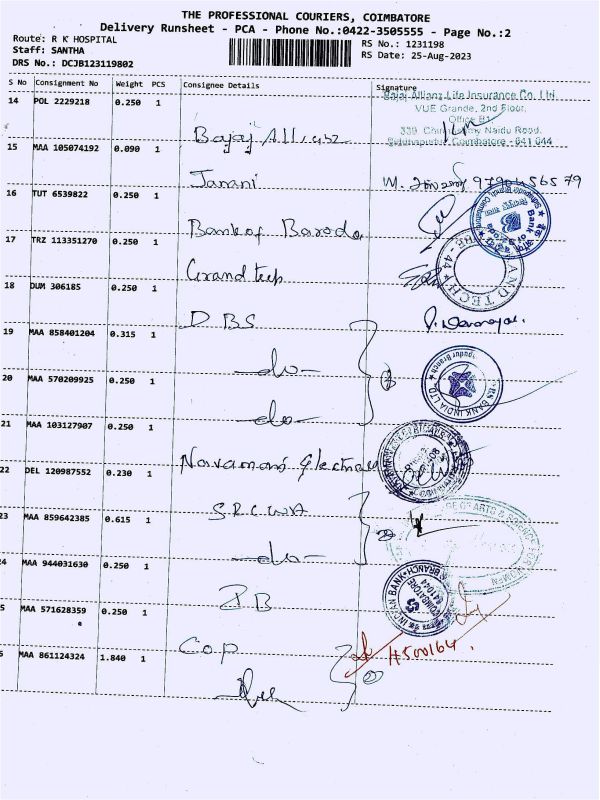 THE PROFESSIONAL COURIERS, COIMBATORE
Delivery Runsheet - PCA - Phone No.:0422-3505555 - Page No.:2
Route: R K HOSPITAL
RS No.: 1231198
Staff: SANTHA
RS Date: 25-Aug-2023
DRS No.: DCJB123119802
S No Consignment No Weight PCS Consignee Details Signature
14 POL 2229218 0.250 1 Bajaj Allianz
Bajaj Allianz Life Insurance Co. Ltd.
VUE Grande, 2nd Floor,
Office B1
339, Naidu Road,
Coimbatore - 641 044
15 MAA 105074192 0.090 1 Janani
16 TUT 6539822 0.250 1 Bank of Baroda
17 TRZ 113351270 0.250 1 Grand tech
18 DUM 306185 0.250 1 DBS
19 MAA 858401204 0.315 1 -do-
20 MAA 570209925 0.250 1 -do-
BS BANK INDIA LTD
21 MAA 103127907 0.250 1 Navamani
22 DEL 120987552 0.230 1 SRCWA
23 MAA 859642385 0.615 1 -do-
24 MAA 944031630 0.250 1 IB
INDIAN BANK
COIMBATORE
641044
5 MAA 571628359 0.250 1 COP
4500164
6 MAA 861124324 1.840 1